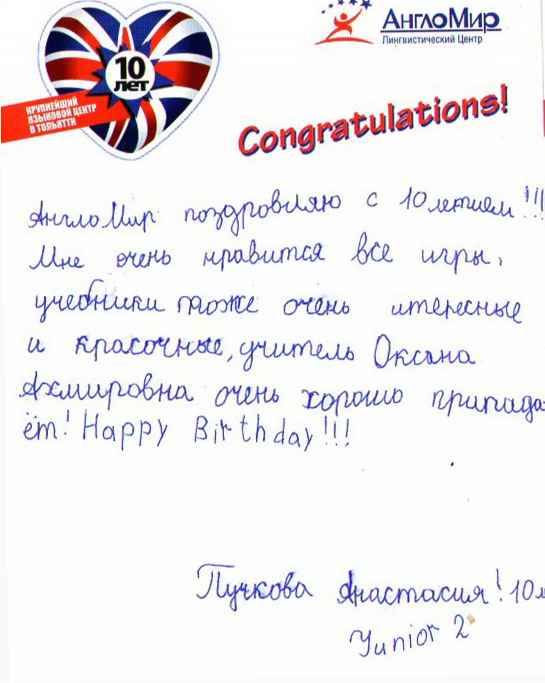 10
лет
КРУПНЕЙШИЙ
ЯЗЫКОВОЙ ЦЕНТР
В ТОЛЬЯТТИ
АнглоМир
Лингвистический Центр
Congratulations!
Англо Мир поздровляю с 10 летием!!!
Мне очень нравится все игры,
учебники тоже очень итересные
и красочные, учитель Оксана
Ахмировна очень хорошо припада
ёт! Happy Birthday!!!
Пучкова Анастасия! 10 л
Yunior 2